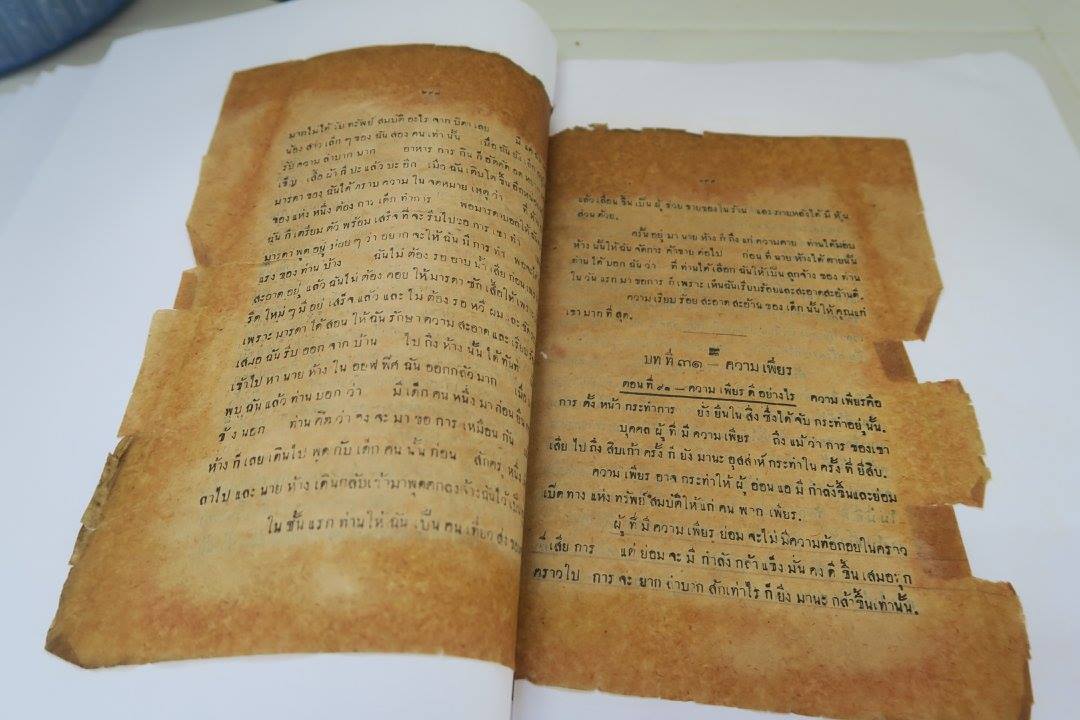 มากไม่ได้รับทรัพย์ สมบัติ อะไร จาก บิดา เลย
น้อง สาว เล็ก ๆ ของ ฉัน สอง คน เท่า นั้น เมื่อ ฉัน ยัง เด็ก
รับ ความ ลำบาก มาก อาหาร การ กิน ก็ อัตคัด
เข็ญ เสื้อ ผ้า ก็ ปะ แล้ว ปะ อีก เมื่อ ฉัน เติบ โต ขึ้น อีกหน่อย
มารดา ของ ฉันได้ ทราบ ความ ใน จดหมาย เหตุ ว่า
ของ แห่ง หนึ่ง ต้อง การ เด็ก ทำการ พอมารดาบอกให้ฉัน
ฉัน ก็ เตรียม ตัว พร้อม เสร็จ ที่ จะ รีบ ไป ขอ การ เขา ทำ
มารดา พูด อยู่ บ่อย ๆ ว่า อยาก จะ ให้ ฉัน มี การ ทำ
แรง ของ ท่าน บ้าง ฉัน ไม่ ต้อง รอ อาบ น้ำ เสีย ก่อน
สะอาด อยู่ แล้ว ฉันไม่ ต้อง คอย ให้ มารดา ซัก เสื้อ ให้
รีด ใหม่ ๆ มี อยู่ เสร็จ แล้ว และ ไม่ ต้อง รอ หวี ผม
เพราะ มารดา ได้ สอน ให้ ฉัน รักษา ความ สะอาด และ เรียบ
เสมอ ฉัน รีบ ออก จาก บ้าน ไป ถึง ห้าง นั้น ได้ ทันที
เข้าไป หา นาย ห้าง ใน ออฟ ฟิศ ฉัน ออกกลัว มาก
พบ ฉัน แล้ว ท่าน บอก ว่า มี เด็ก คน หนึ่ง มา ก่อน
ข้าง นอก ท่าน คิด ว่า คง จะ มา ขอ การ เหมือน กัน
ห้าง ก็ เลย เดินไป พูด กับ เด็ก คน นั้น ก่อน สักครู่
ลาไป และ นาย ห้าง เดินกลับเข้ามาพูดตกลงจ้างฉันไว้
ใน ชั้น แรก ท่าน ให้ ฉัน เป็น คน เที่ยว ส่ง ของ
แล้วเลื่อน ขึ้น เป็น ผู้ ช่วย ขายของใน ร้าน และภายหลังได้ มี หุ้น
ส่วน ด้วย.
ครั้น อยู่ มา นาย ห้าง ก็ ถึง แก่ ความตาย ท่านได้มอบ
ห้าง นั้นให้ ฉัน จัดการ ค้าขาย ต่อไป ก่อน ที่ นาย ห้างได้ ตายนั้น
ท่าน ได้ บอก ฉัน ว่า ที่ ท่านได้ เลือก ฉันให้เป็น ลูกจ้าง ของ ท่าน
ใน วัน แรก มา ขอการ ก็ เพราะ เห็นฉันเรียบร้อยและสะอาดสะอ้านดี.
ความ เรียบ ร้อย สะอาด สะอ้าน ของ เด็ก นั้น ให้ คุณแก่
เขา มาก ที่ สุด.
บท ที่ ๓๑ — ความ เพียร
ตอนที่ ๙๑ — ความ เพียร ดี อย่างไร ความ เพียรคือ
การ ตั้ง หน้า กระทำการ ยั่ง ยืนใน สิ่ง ซึ่งได้ จับ กระทำอยู่ นั้น.
บุคคล ผู้ ที่ มี ความ เพียร ถึง แม้ ว่า การ ของเขา
เสีย ไป ถึง สิบเก้า ครั้ง ก็ ยัง มานะ อุสส่าห์ กระทำใน ครั้ง ที่ ยี่สิบ.
ความ เพียร อาจ กระทำให้ ผู้ อ่อน แอ มี กำลังขึ้นและย่อม
เบิด ทาง แห่ง ทรัพย์ สมบัติให้ แก่ คน พาก เพียร.
ผู้ ที่ มี ความ เพียร ย่อม จะไม่ มีความท้อถอยในคราว
ที่ เสีย การ แต่ ย่อม จะ มี กำลัง กล้า แข็ง มั่น คง ดี ขึ้น เสมอะทุก
คราวไป การ จะ ยาก ลำบาก สักเท่าไร ก็ ยิ่ง มานะ กล้าขึ้นเท่านั้น.